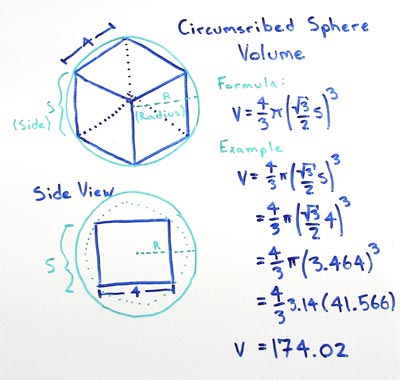 Circumsribed Sphere
Volume
4
S
(Side)
R
(Radius)
Formula:
V=4/3π(√3/2 S)³
Example
V=4/3π(√3/2 S)³
=4/3π(√3/2 4)³
=4/3π(3.464)³
=4/3 3.14(41.566)
V =174.02
Side View
S
R
4